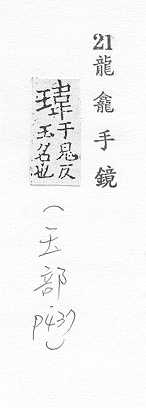 21 龍龕手鏡
瑋
于鬼反
玉名也
(玉部 p437)